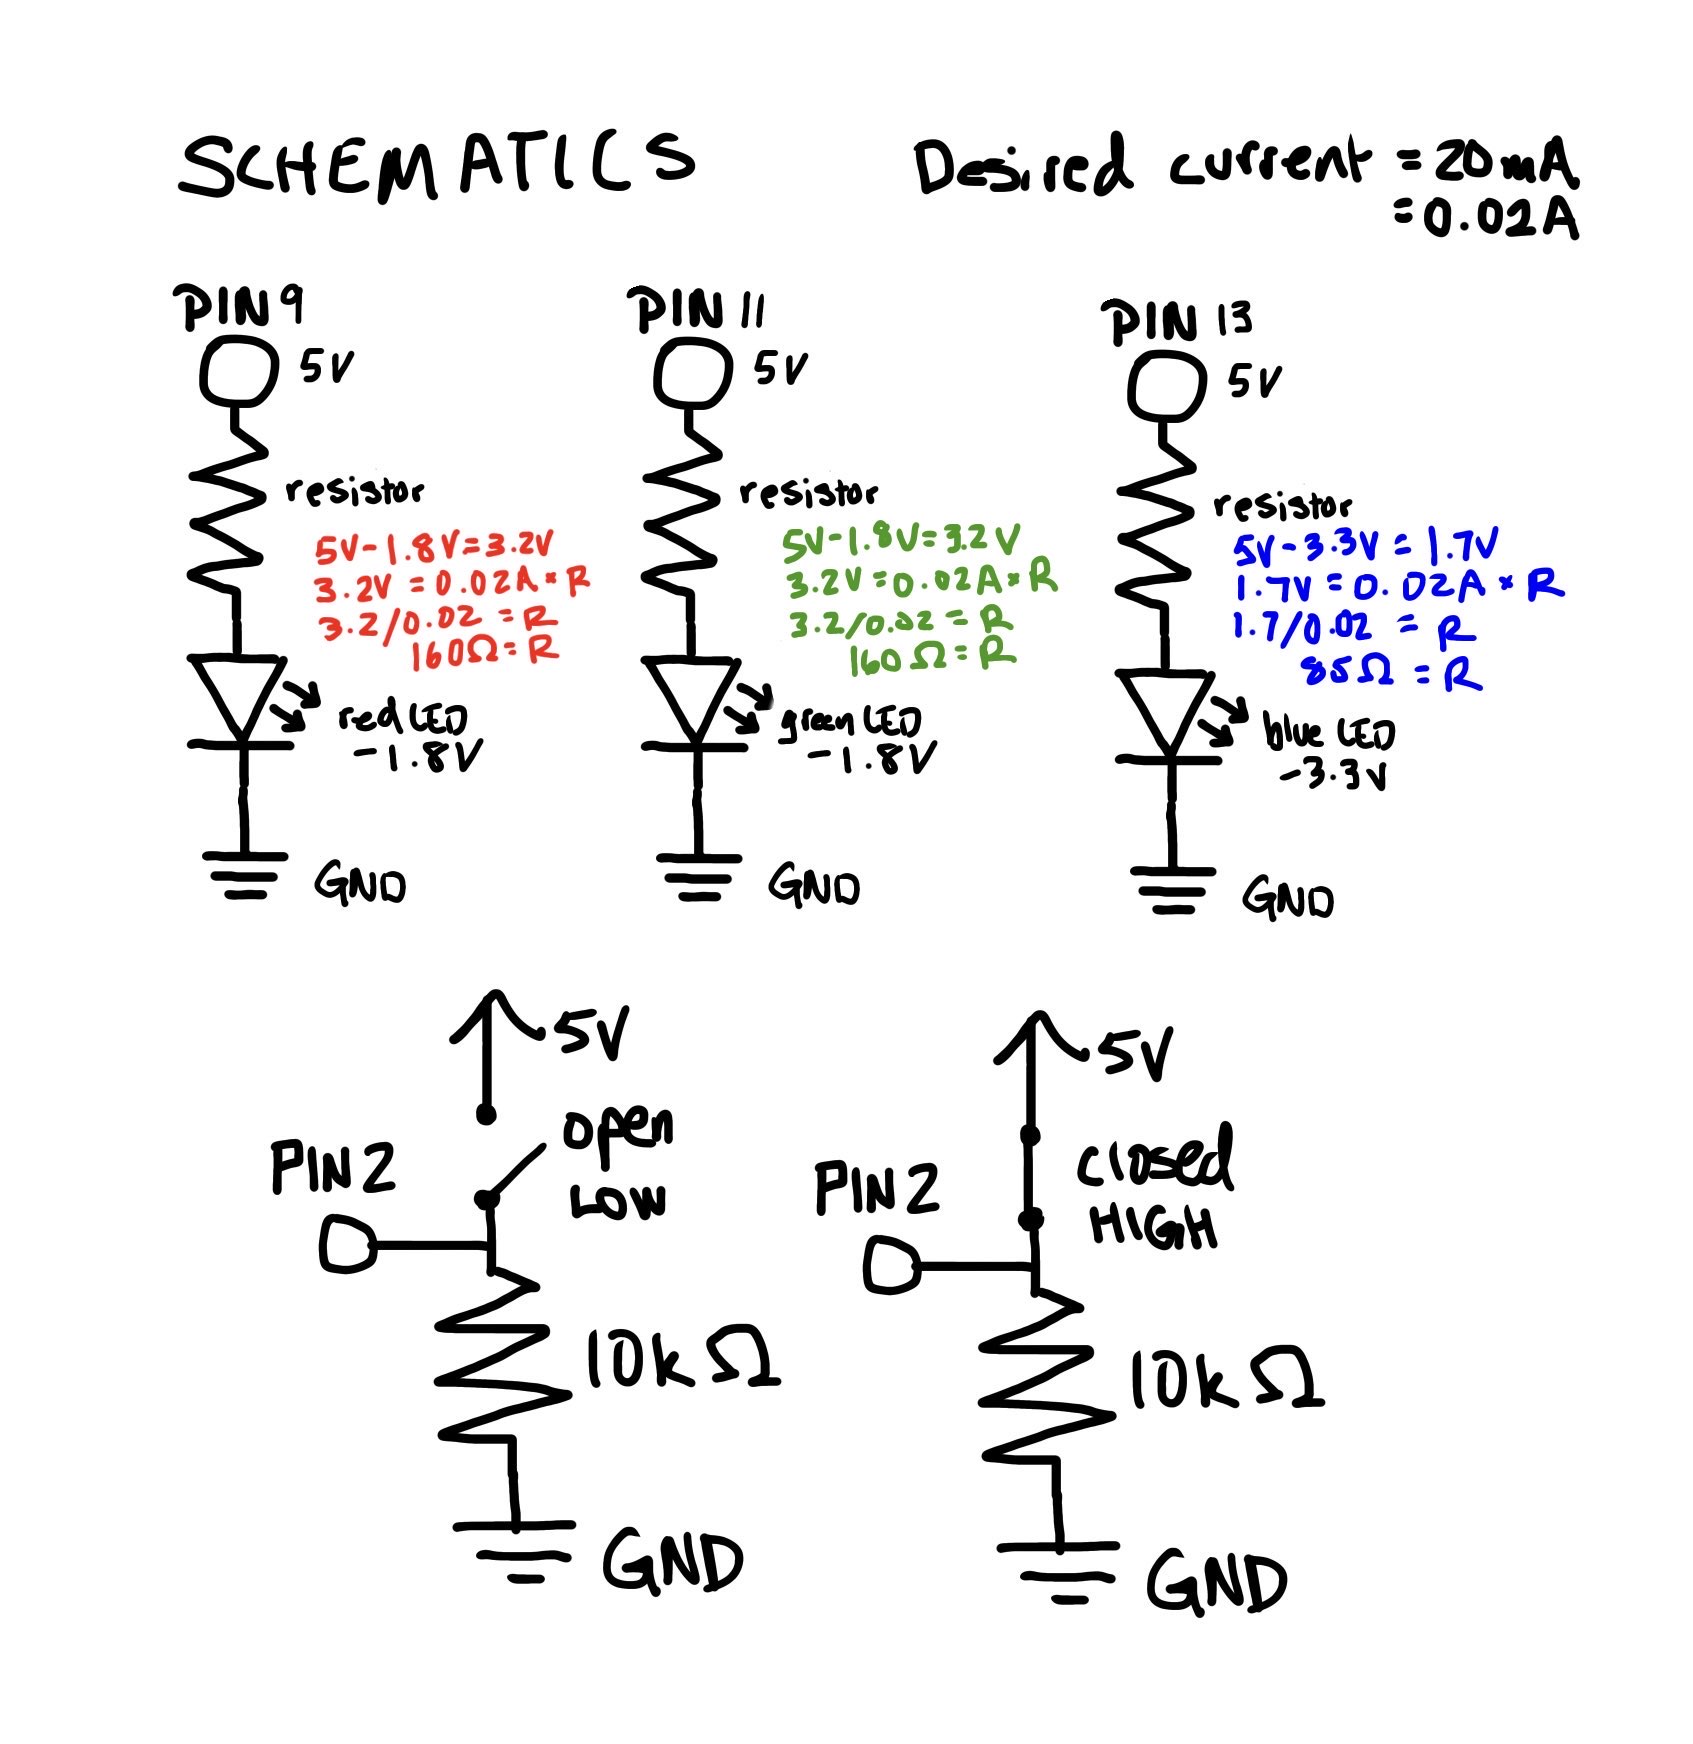 SCHEMATICS
Desired current = 20mA
= 0.02A
PIN 9
5V
resistor
5V - 1.8V = 3.2V
3.2V = 0.02A * R
3.2/0.02 = R
160Ω = R
red LED
-1.8V
GND
PIN 11
5V
resistor
5V - 1.8V = 3.2V
3.2V = 0.02A * R
3.2/0.02 = R
160Ω = R
green LED
-1.8V
GND
PIN 13
5V
resistor
5V - 3.3V = 1.7V
1.7V = 0.02A * R
1.7/0.02 = R
85Ω = R
blue LED
-3.3V
GND
5V
open
LOW
PIN 2
10k Ω
GND
5V
closed
HIGH
PIN 2
10k Ω
GND